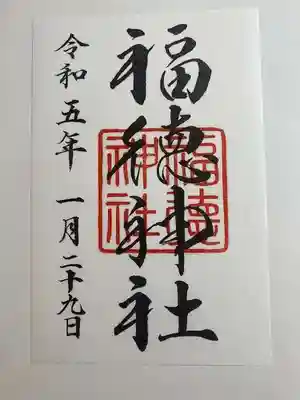 福徳神社
令和五年 一月二十九日
福徳
神社